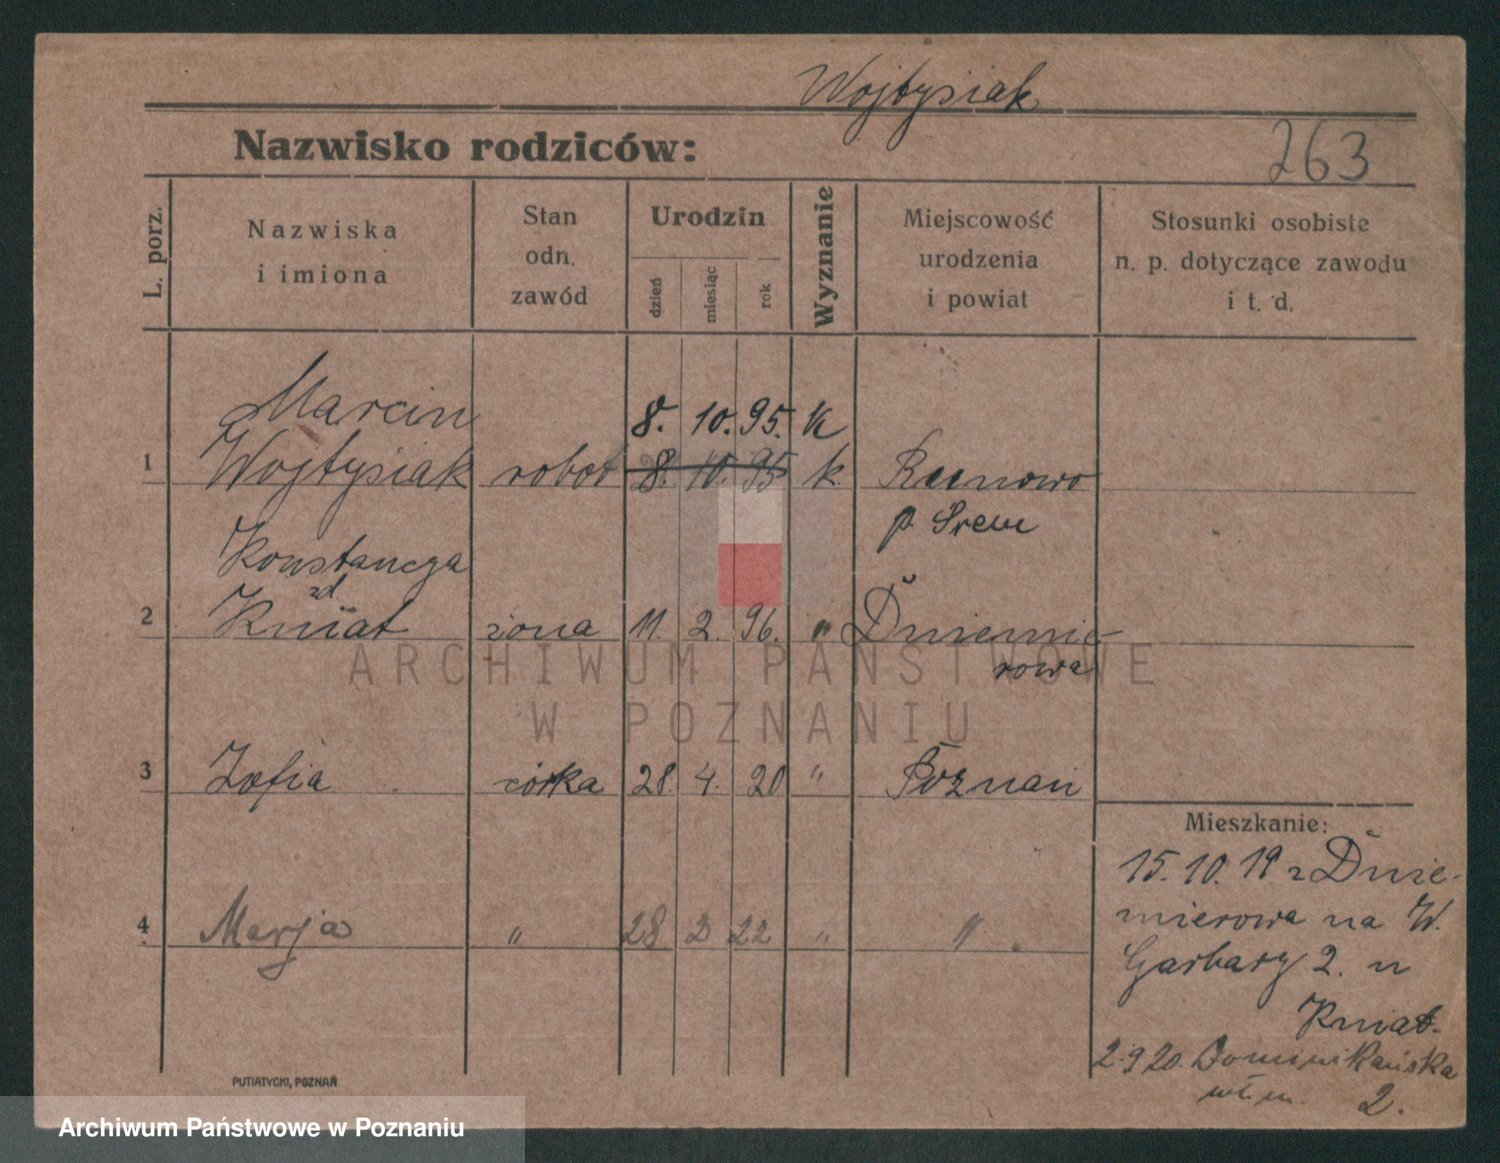 Wojtysiak
Nazwisko rodziców:
263
L. porz.
Nazwiska
i imiona
Stan
odn.
zawód
Urodzin
dzień
miesiąc
rok
Wyznanie
Miejscowość
urodzenia
i powiat
Stosunki osobiste
n. p. dotyczące zawodu
i t. d.
Marcin 8. 10. 95. K
1 Wojtysiak robot 8. 10. 95 k. Runowo
p. Śrem
Konstancya
zd.
2 Kniat żona 11. 2. 96. " Dniemie-
rowa
3 Zofia córka 28. 4. 20 " Poznań
4 Marja " 28 2 22 " "
Mieszkanie:
15. 10. 19 z Dnie-
mierowa na W.
Garbary 2. u
Kniat.
2.9 20. Dominikańska
2.
PUTIATYCKI, POZNAŃ
ARCHIWUM PAŃSTWOWE
W POZNANIU
Archiwum Państwowe w Poznaniu